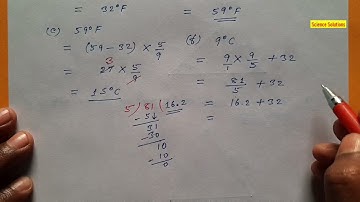 Science Solutions
= 32°F
= 59°F
(c) 59°F
= (59 - 32) × 5/9
= 27 × 5/9
3
= 15°C
(d) 9°C
= 9/1 × 9/5 + 32
= 81/5 + 32
= 16.2 + 32
=
5) 81 (16.2
- 5↓
31
- 30
10
- 10
0